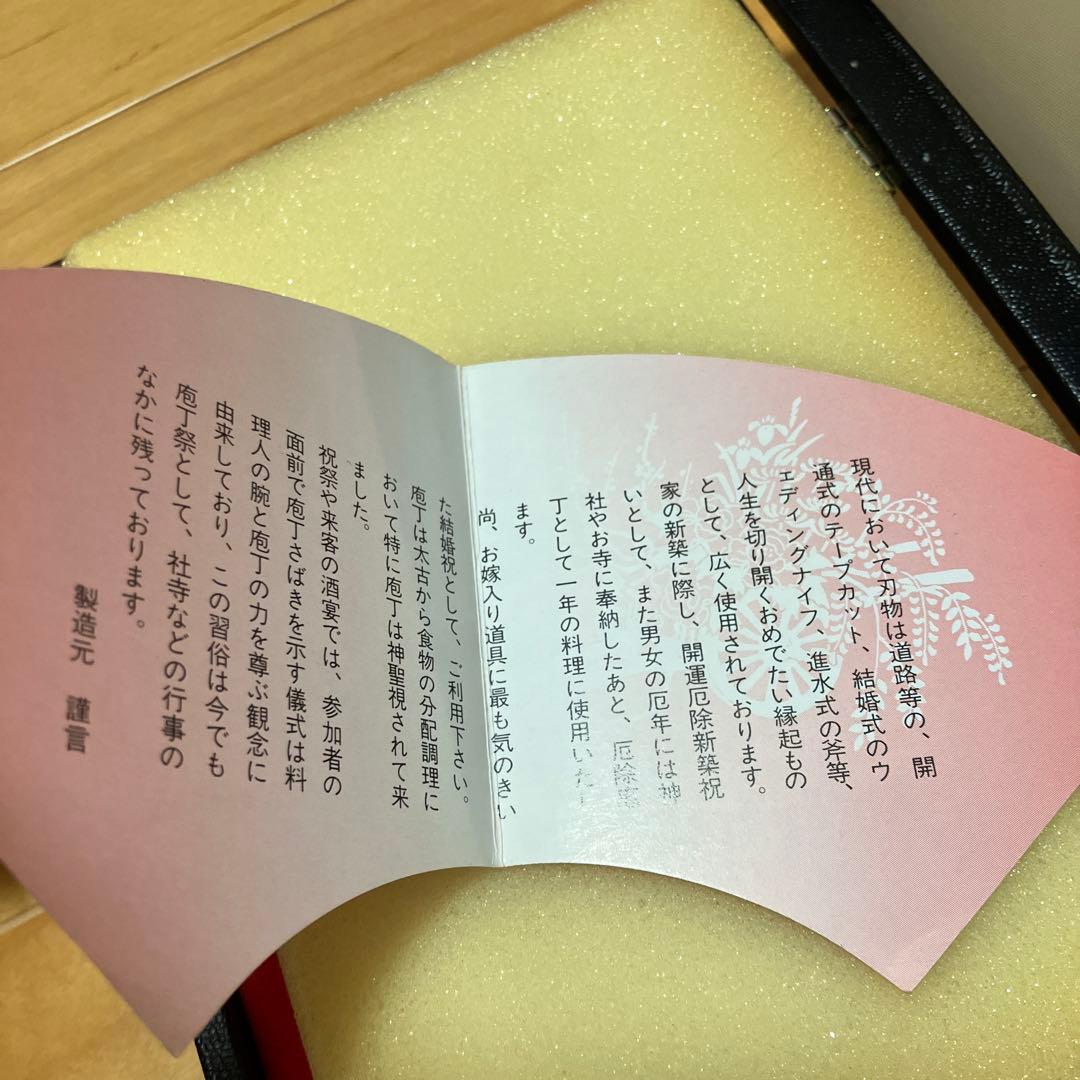 現代において刃物は道路等の、開
通式のテープカット、結婚式のウ
ェディングナイフ、進水式の斧等、
人生を切り開くおめでたい縁起もの
として、広く使用されております。
家の新築に際し、開運厄除新築祝
いとして、また男女の厄年には神
社やお寺に奉納したあと、厄除
丁として一年の料理に使用いた
ます。
尚、お嫁入り道具に最も気のきい
た結婚祝として、ご利用下さい。
庖丁は太古から食物の分配調理に
おいて特に庖丁は神聖視されて来
ました。
祝祭や来客の酒宴では、参加者の
面前で庖丁さばきを示す儀式は料
理人の腕と庖丁の力を尊ぶ観念に
由来しており、この習俗は今でも
庖丁祭として、社寺などの行事の
なかに残っております。
製造元 謹言